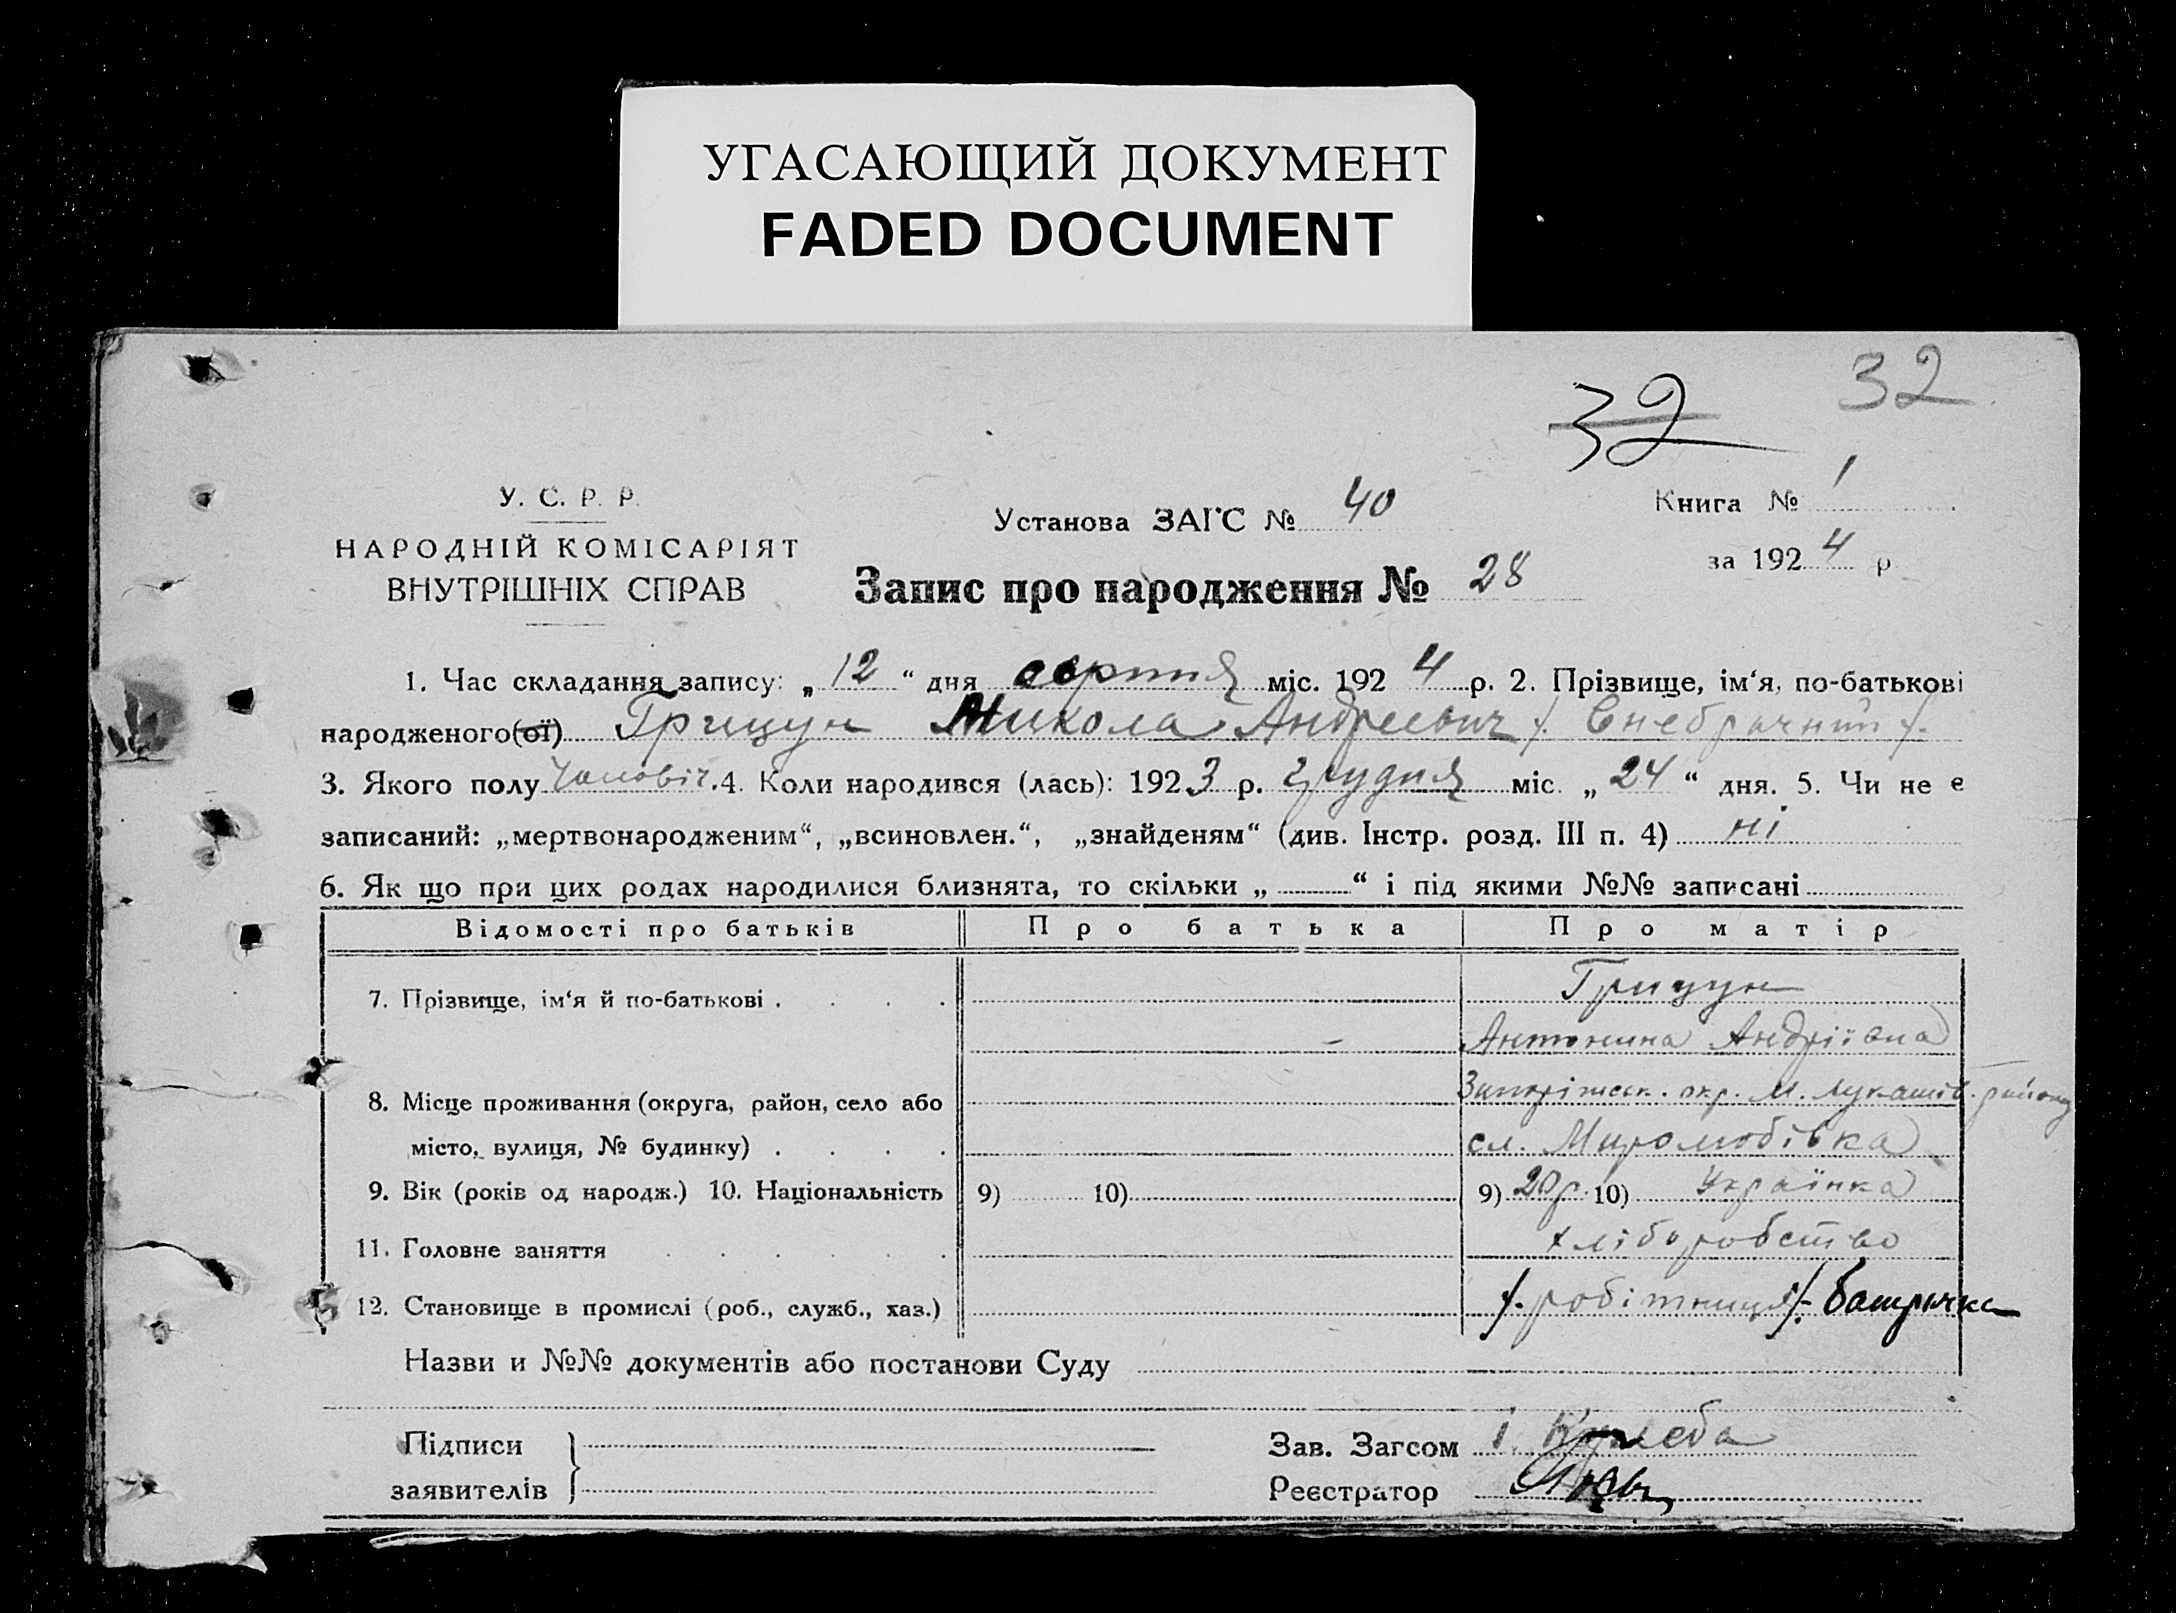 УГАСАЮЩИЙ ДОКУМЕНТ
FADED DOCUMENT
32
32
У. С. Р. Р.
НАРОДНІЙ КОМІСАРІЯТ
ВНУТРІШНІХ СПРАВ
Установа ЗАГС № 40
Книга № 1
за 1924 р
Запис про народження № 28
1. Час складання запису: „12“ дня серпня міс. 1924 р. 2. Прізвище, ім‘я, по-батькові
народженого(ої) Грицун Микола Андреевич /. Внебрачний /.
3. Якого полу чоловіч. 4. Коли народився (лась): 1923 р. грудня міс. „24“ дня. 5. Чи не є
записаний: „мертвонародженим“, „всиновлен.“, „знайденям“ (див. Інстр. розд. III п. 4) ні
6. Як що при цих родах народилися близнята, то скільки „ “ і під якими №№ записані
Відомості про батьків Про батька Про матір
7. Прізвище, ім‘я й по-батькові . . . . Грицун
Антонина Андріївна
8. Місце проживання (округа, район, село або Запоріжськ. окр. М. Лукашів. району
місто, вулиця, № будинку) . . . . сл. Миролюбівка
9. Вік (років од народж.) 10. Національність 9) 10) 9) 20 р. 10) Українка
11. Головне заняття . . . . . . хліборобство
12. Становище в промислі (роб., служб., хаз.) /. робітниця /. батрачка
Назви и №№ документів або постанови Суду
Підписи
заявителів
Зав. Загсом І. Кулеба
Реєстратор